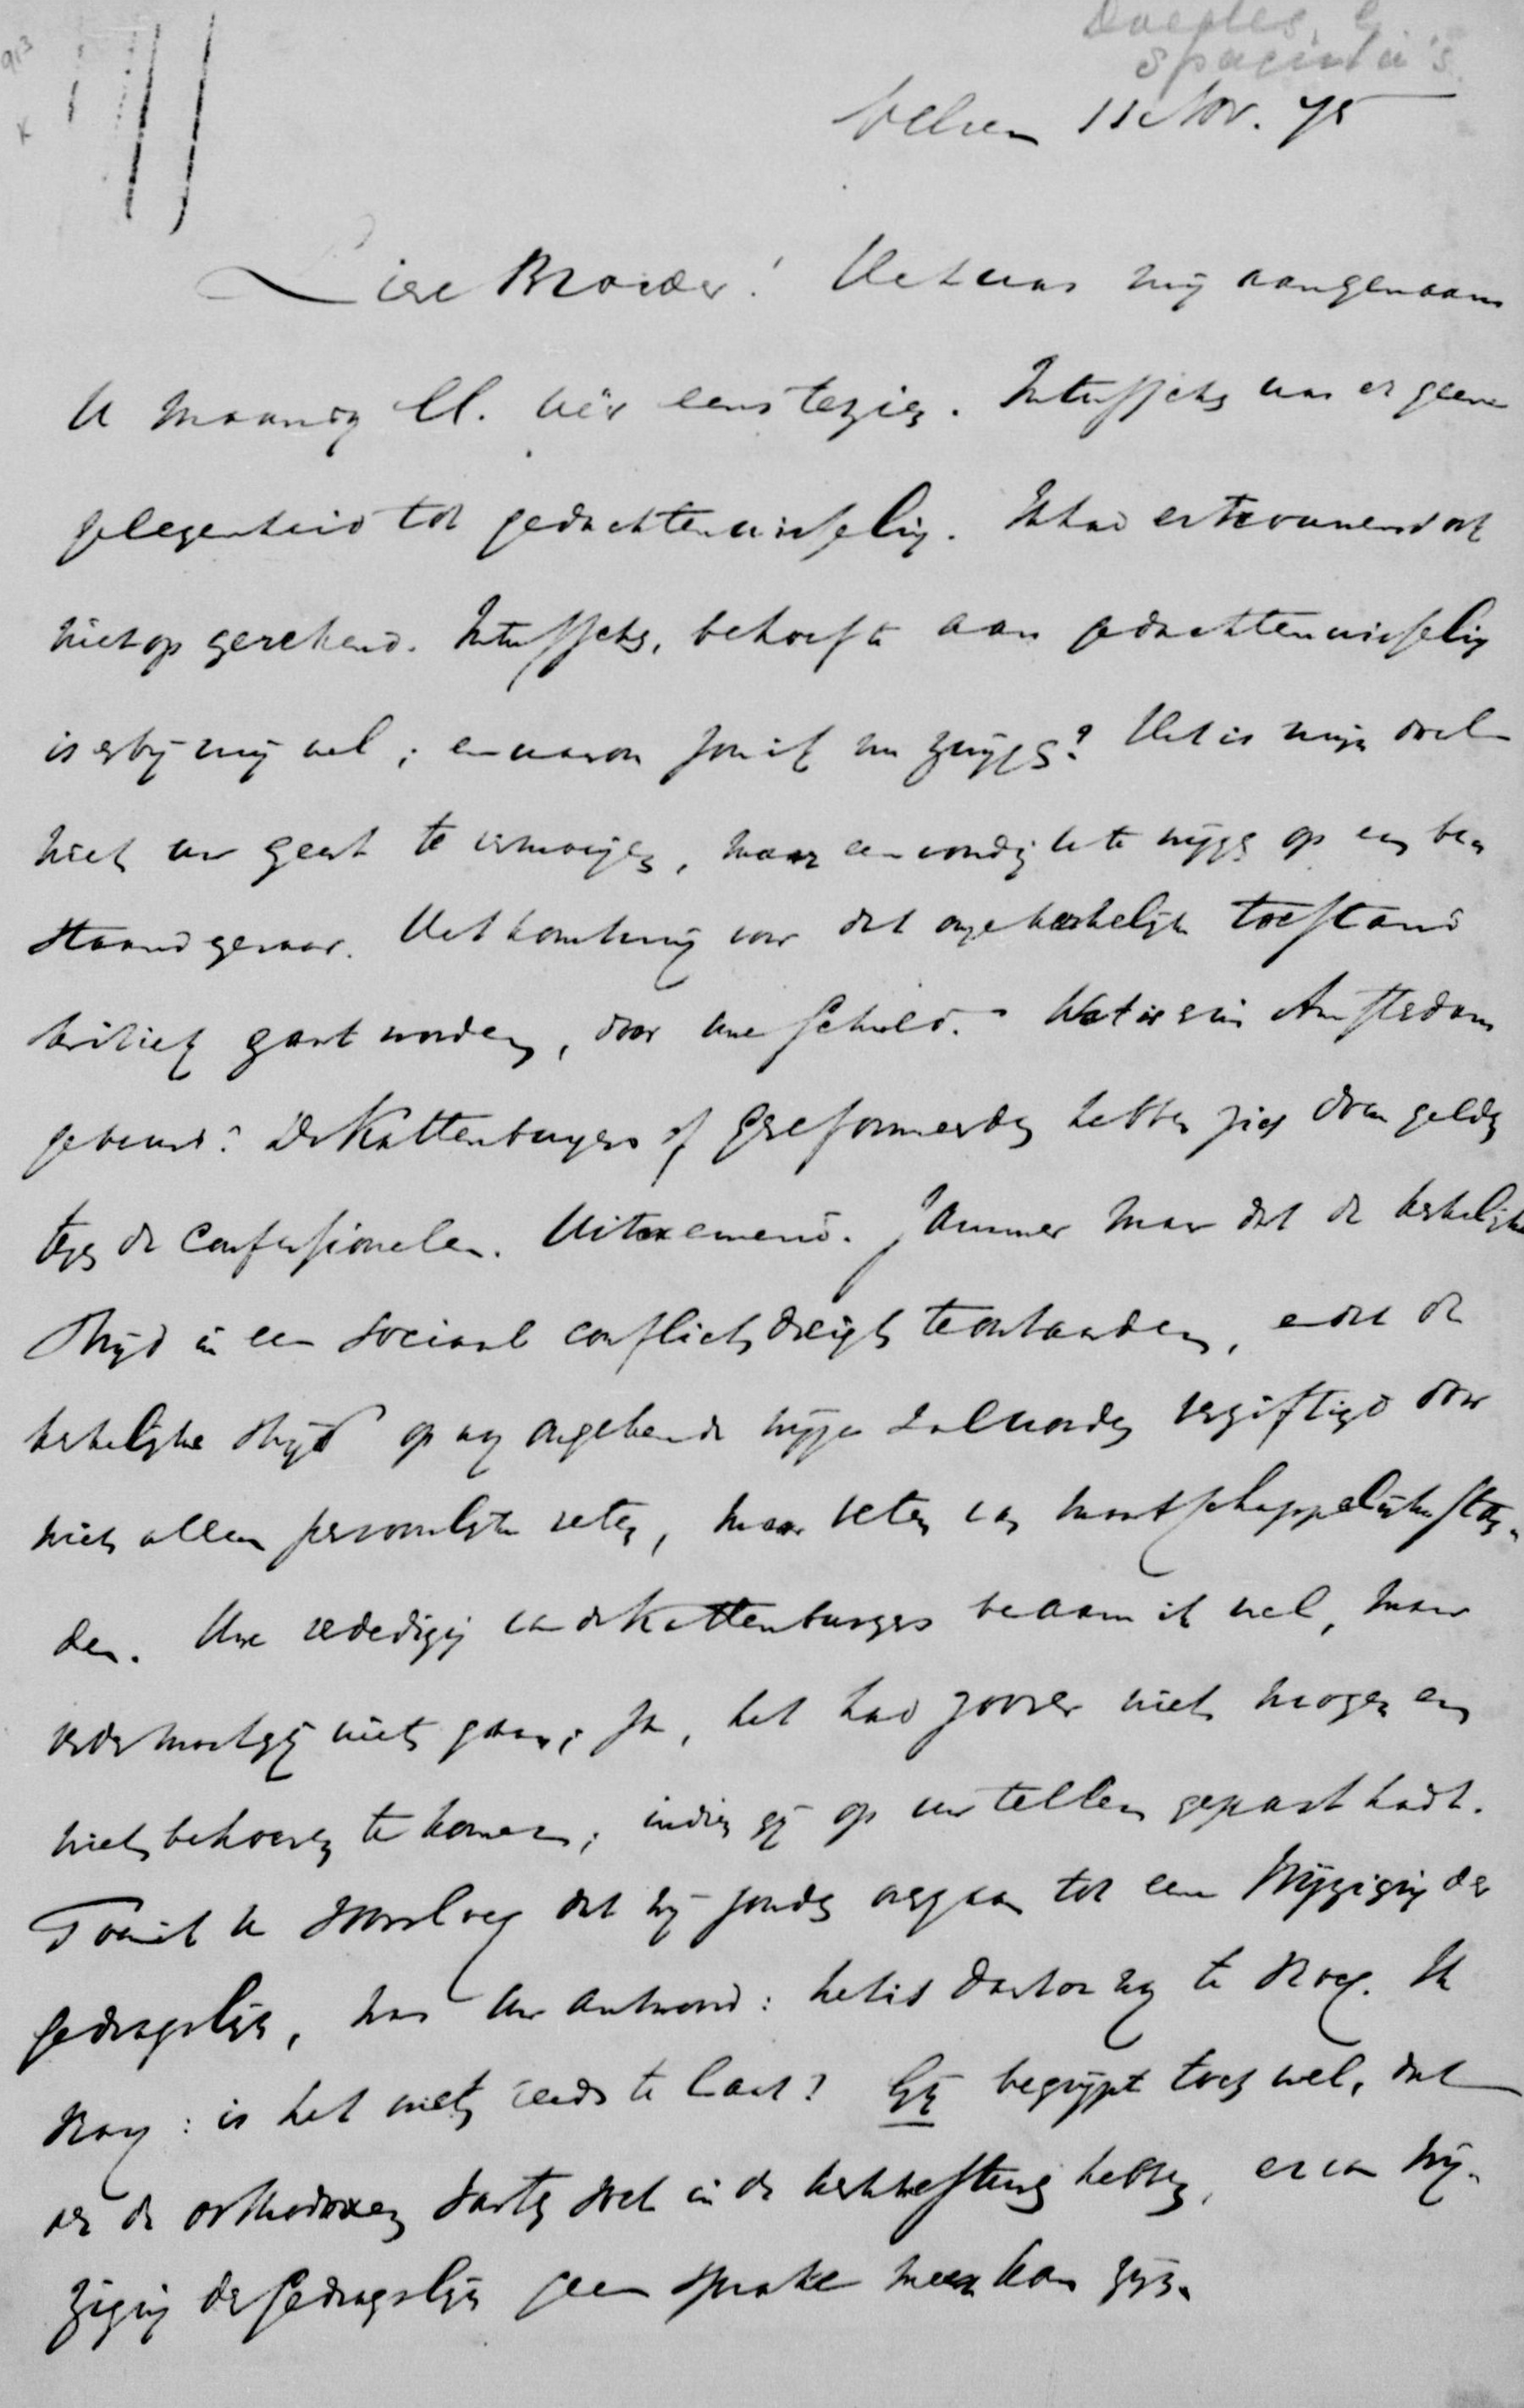 913
Velsen 11 Nov. 75
Lieve Broeder! Het was mij aangenaam
U maandag ll. hier eens te zien. Intusschen was er geene
gelegenheid tot gedachtenwisseling. Ik had er trouwens ook
niet op gerekend. Intusschen, behoefte aan gedachtenwisseling
is er bij mij wel; en waarom zou ik nu zwijgen? Het is mijn doel
niet uw geest te vermoeijen, maar eenvoudig U te wijzen op een be-
staand gevaar. Het komt mij voor dat onze kerkelijke toestand
kritiek gaat worden, door uwe schuld. Wat is er in Amsterdam
gebeurd? De Kattenburgers of Gereformeerden hebben zich doen gelden
tegen de Confessionelen. Uitnemend. Jammer maar dat de kerkelijke
strijd in een sociaal conflict dreigt te ontaarden, en dat de
kerkelijke strijd op ongehoorde wijze zal worden vergiftigd door
niet alleen persoonlijke veten, maar veten van maatschappelijke stan-
den. Uwe verdediging van de Kattenburgers beaam ik wel, maar
verder moest gij niet gaan; ja, het had zoover niet mogen en
niet behoeven te komen; indien gij op uw tellen gepast hadt.
Toen ik U voorsloeg dat wij zouden overgaan tot een wijziging der
gedragslijn, was Uw antwoord: het is daartoe nog te vroeg. Ik
vraag: is het niet reeds te laat? Gij begrijpt toch wel, dat
als de orthodoxen vasten voet in de kerk hebben, er van wij-
ziging der gedragslijn geen sprake meer kan zijn.